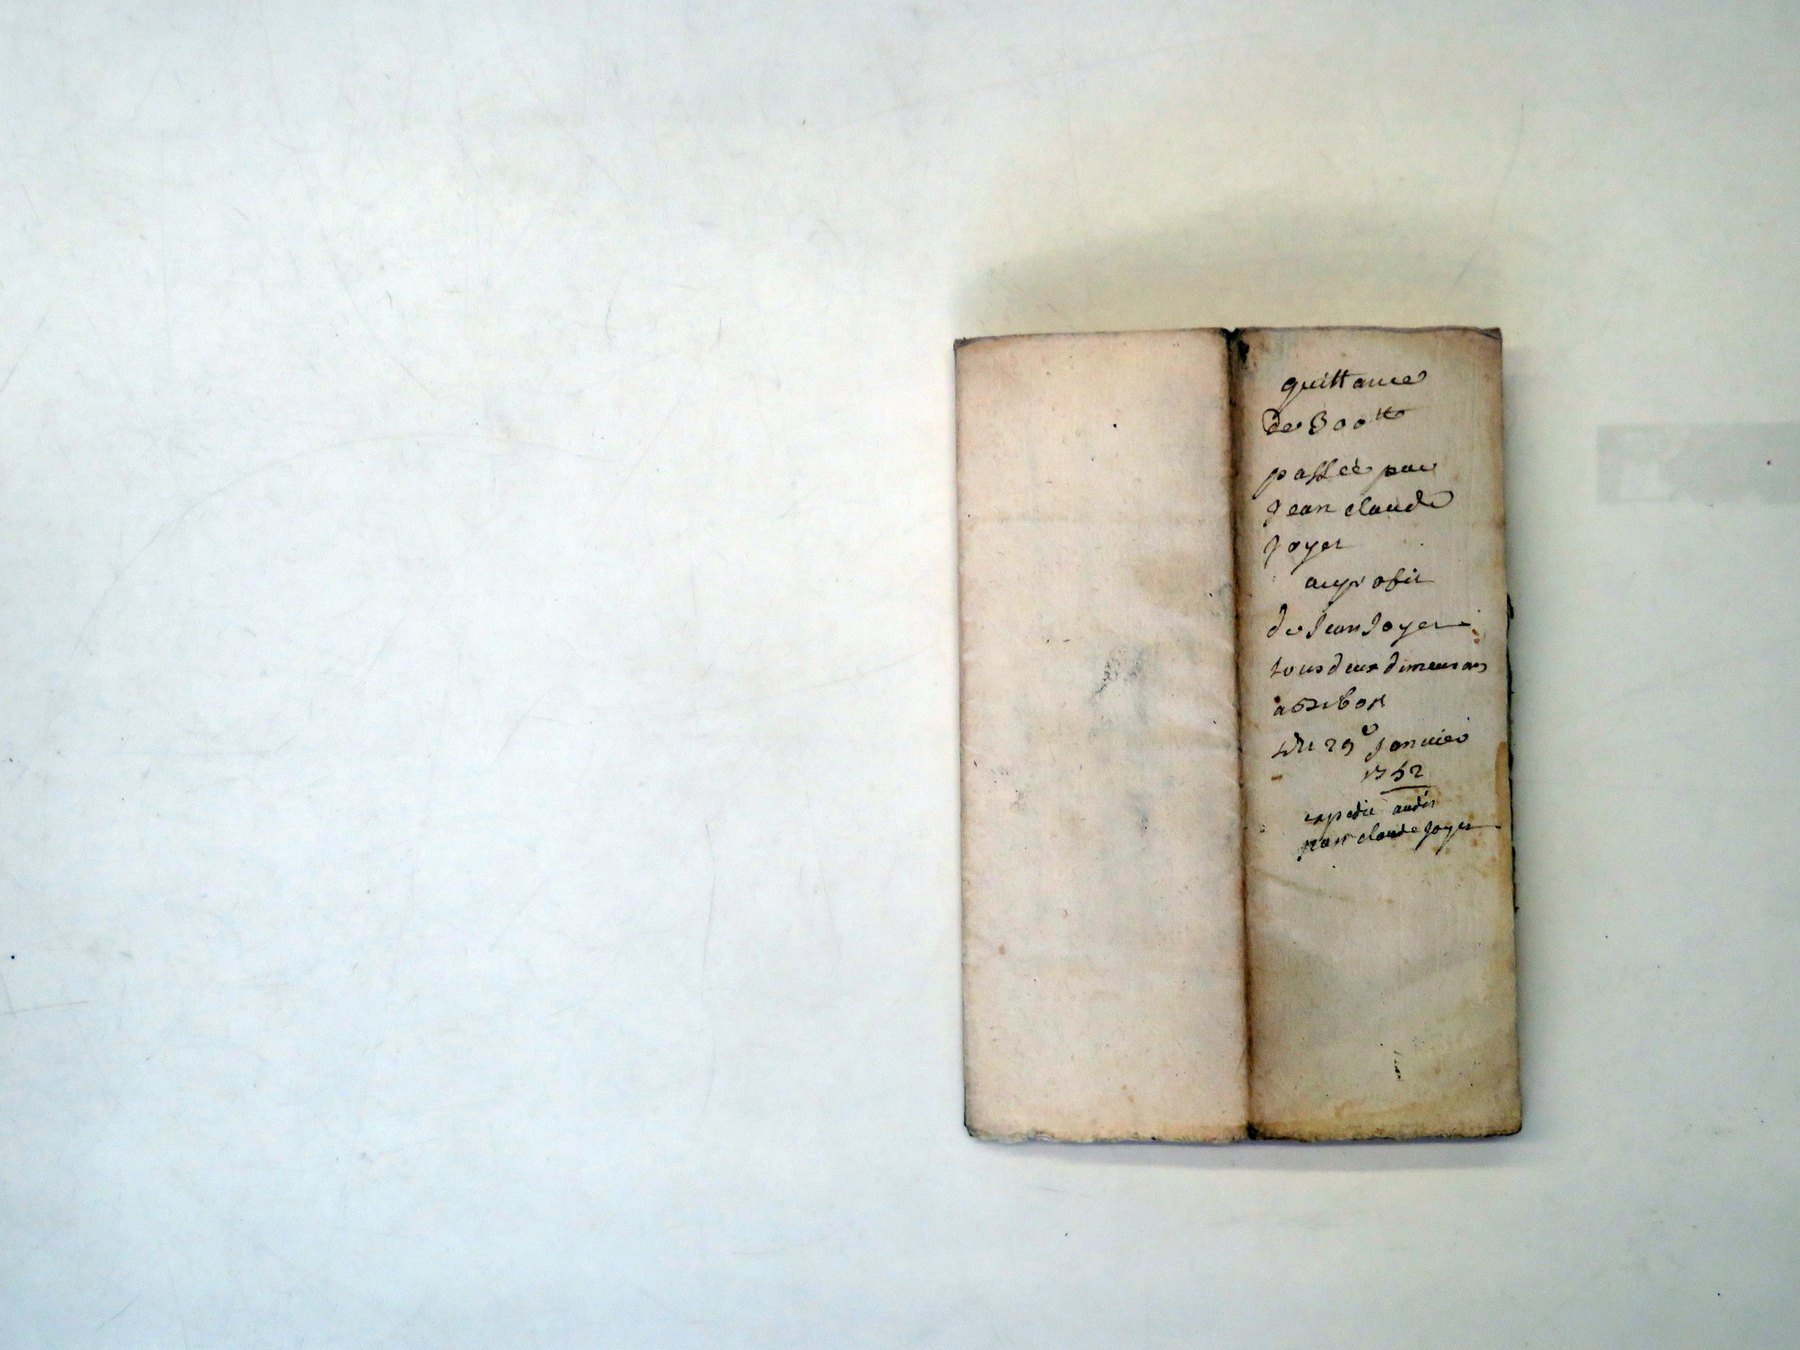 quittance
de 300 ₶
passée par
Jean claude
Joyer
au profit
de Jean Joyer
tous deux dimeurans
a
Du 29e Janvier
1762
expedié audit
jean claude Joyer